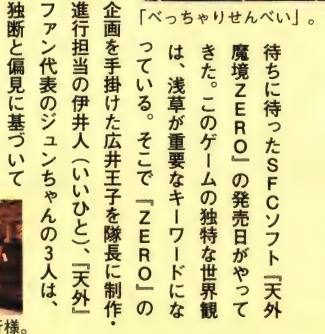 「べっちゃりせんべい」。
待ちに待ったSFCソフト『天外
魔境ZERO』の発売日がやって
きた。このゲームの独特な世界観
は、浅草が重要なキーワードにな
っている。そこで『ZERO』の
企画を手掛けた広井王子を隊長に制作・
進行担当の伊井人（いいひと）、『天外』
ファン代表のジュンちゃんの3人は、
独断と偏見に基づいて
様。